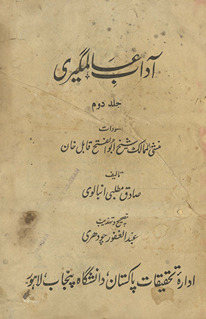 آداب عالمگیری
جلد دوم
مسودات
منشی الممالک شیخ ابوالفتح قابل خان
تالیف
صادق مطلبی انبالوی
تصحیح و تہذیب
عبدالغفور چودھری
ادارہ تحقیقات پاکستان، دانشگاہ پنجاب، لاہور